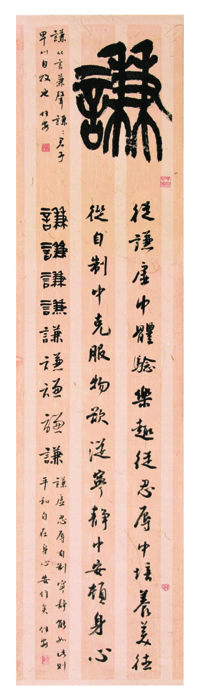 謙
從謙虛中體驗樂趣從忍辱中培養美德
從自制中克服物欲從寧靜中安頓身心
謙從言兼聲謙謙君子
卑以自牧也
謙謙謙謙謙謙謙謙謙
謙虛忍辱自制寧靜能如此則
平和自在身心安